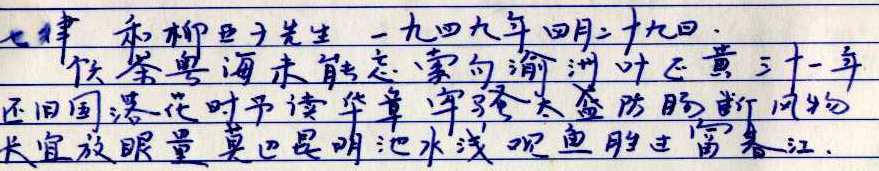 七律 和柳亚子先生 一九四九年四月二十九日.
饮茶粤海未能忘 索句渝洲叶正黄 三十一年
还旧国 落花时节读华章 牢骚太盛防肠断 风物
长宜放眼量 莫道昆明池水浅 观鱼胜过富春江.